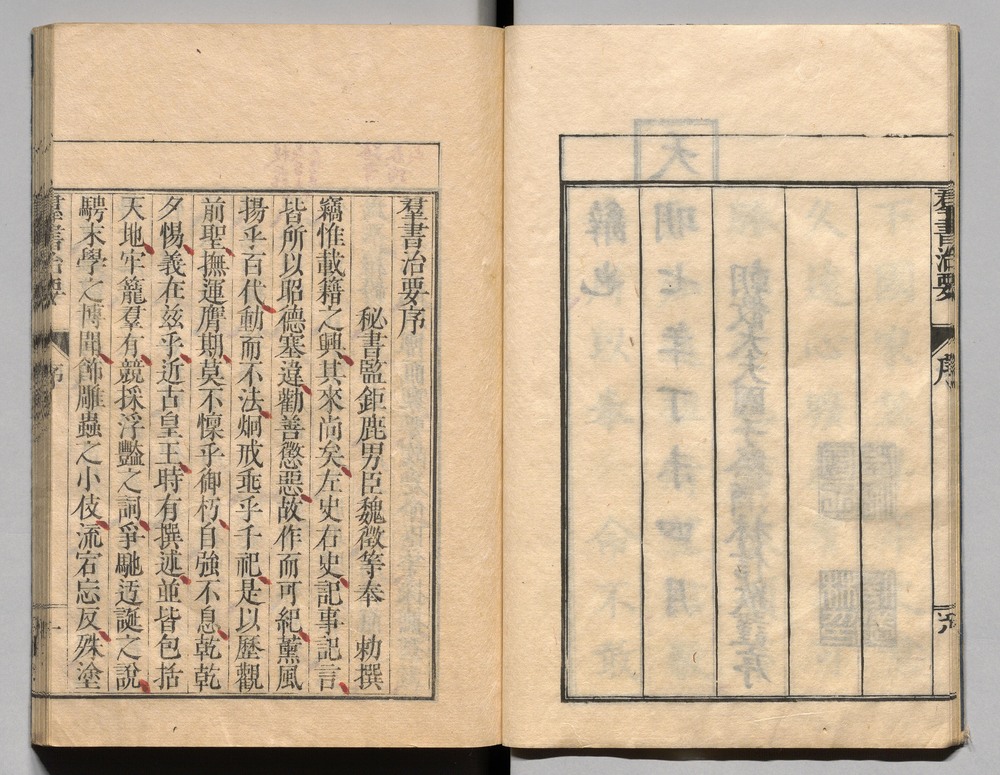 羣書治要
序
羣書治要序
秘書監鉅鹿男臣魏徵等奉　勅撰
竊惟載籍之興其來尚矣左史右史記事記言
皆所以昭德塞違勸善懲惡故作而可紀薰風
揚乎百代動而不法炯戒垂乎千祀是以歷觀
前聖撫運膺期莫不懍乎御朽自強不息乾乾
夕惕義在茲乎近古皇王時有撰述並皆包括
天地牢籠羣有競採浮豔之詞爭馳迂誕之說
騁末學之博聞飾雕蟲之小伎流宕忘反殊塗
羣書治要
序
一